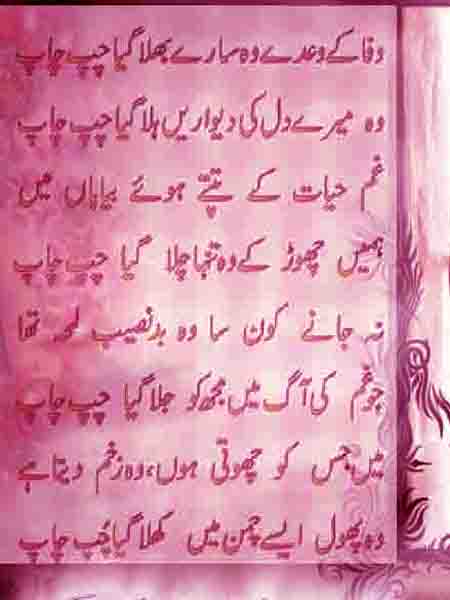 وفا کے وعدے وہ سارے بھلا گیا چپ چاپ
وہ میرے دل کی دیواریں ہلا گیا چپ چاپ
غم حیات کے تپتے ہوئے بیاباں میں
ہمیں چھوڑ کے وہ تنہا چلا گیا چپ چاپ
نہ جانے کون سا وہ بدنصیب لمحہ تھا
جو غم کی آگ میں مجھ کو جلا گیا چپ چاپ
میں جس کو چھوتی ہوں، وہ زخم دیتا ہے
وہ پھول ایسے چمن میں کھلا گیا چُپ چاپ